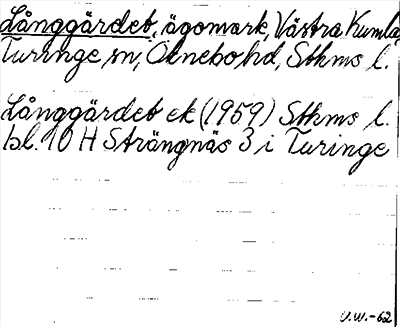 Långgärdet, ägomark, Västra Kumla
Turinge sn, Öknebo hd, Sthms l.
Långgärdet ek (1959) Sthms l.
bl. 10 H Strängnäs 3 i Turinge
U.W.-62